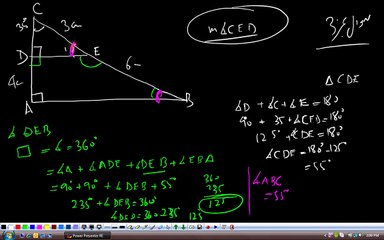 C
35°
3cm
m∡CED
D
1
E
6
4c
A
B
∆ CDE
∡D + ∡C + ∡E = 180°
90 + 35 + ∡CED = 180°
125 + ∡DE = 180°
∡CDE = 180° - 125
= 55°
∡ DEB
□ = ∡ = 360°
= ∡A + ∡ADE + ∡DEB + ∡EBA
= 90 + 90 + ∡DEB + 55°
235 + ∡DEB = 360°
∡DEB = 360 - 235
125
360
235
125
∡ABC
= 55°